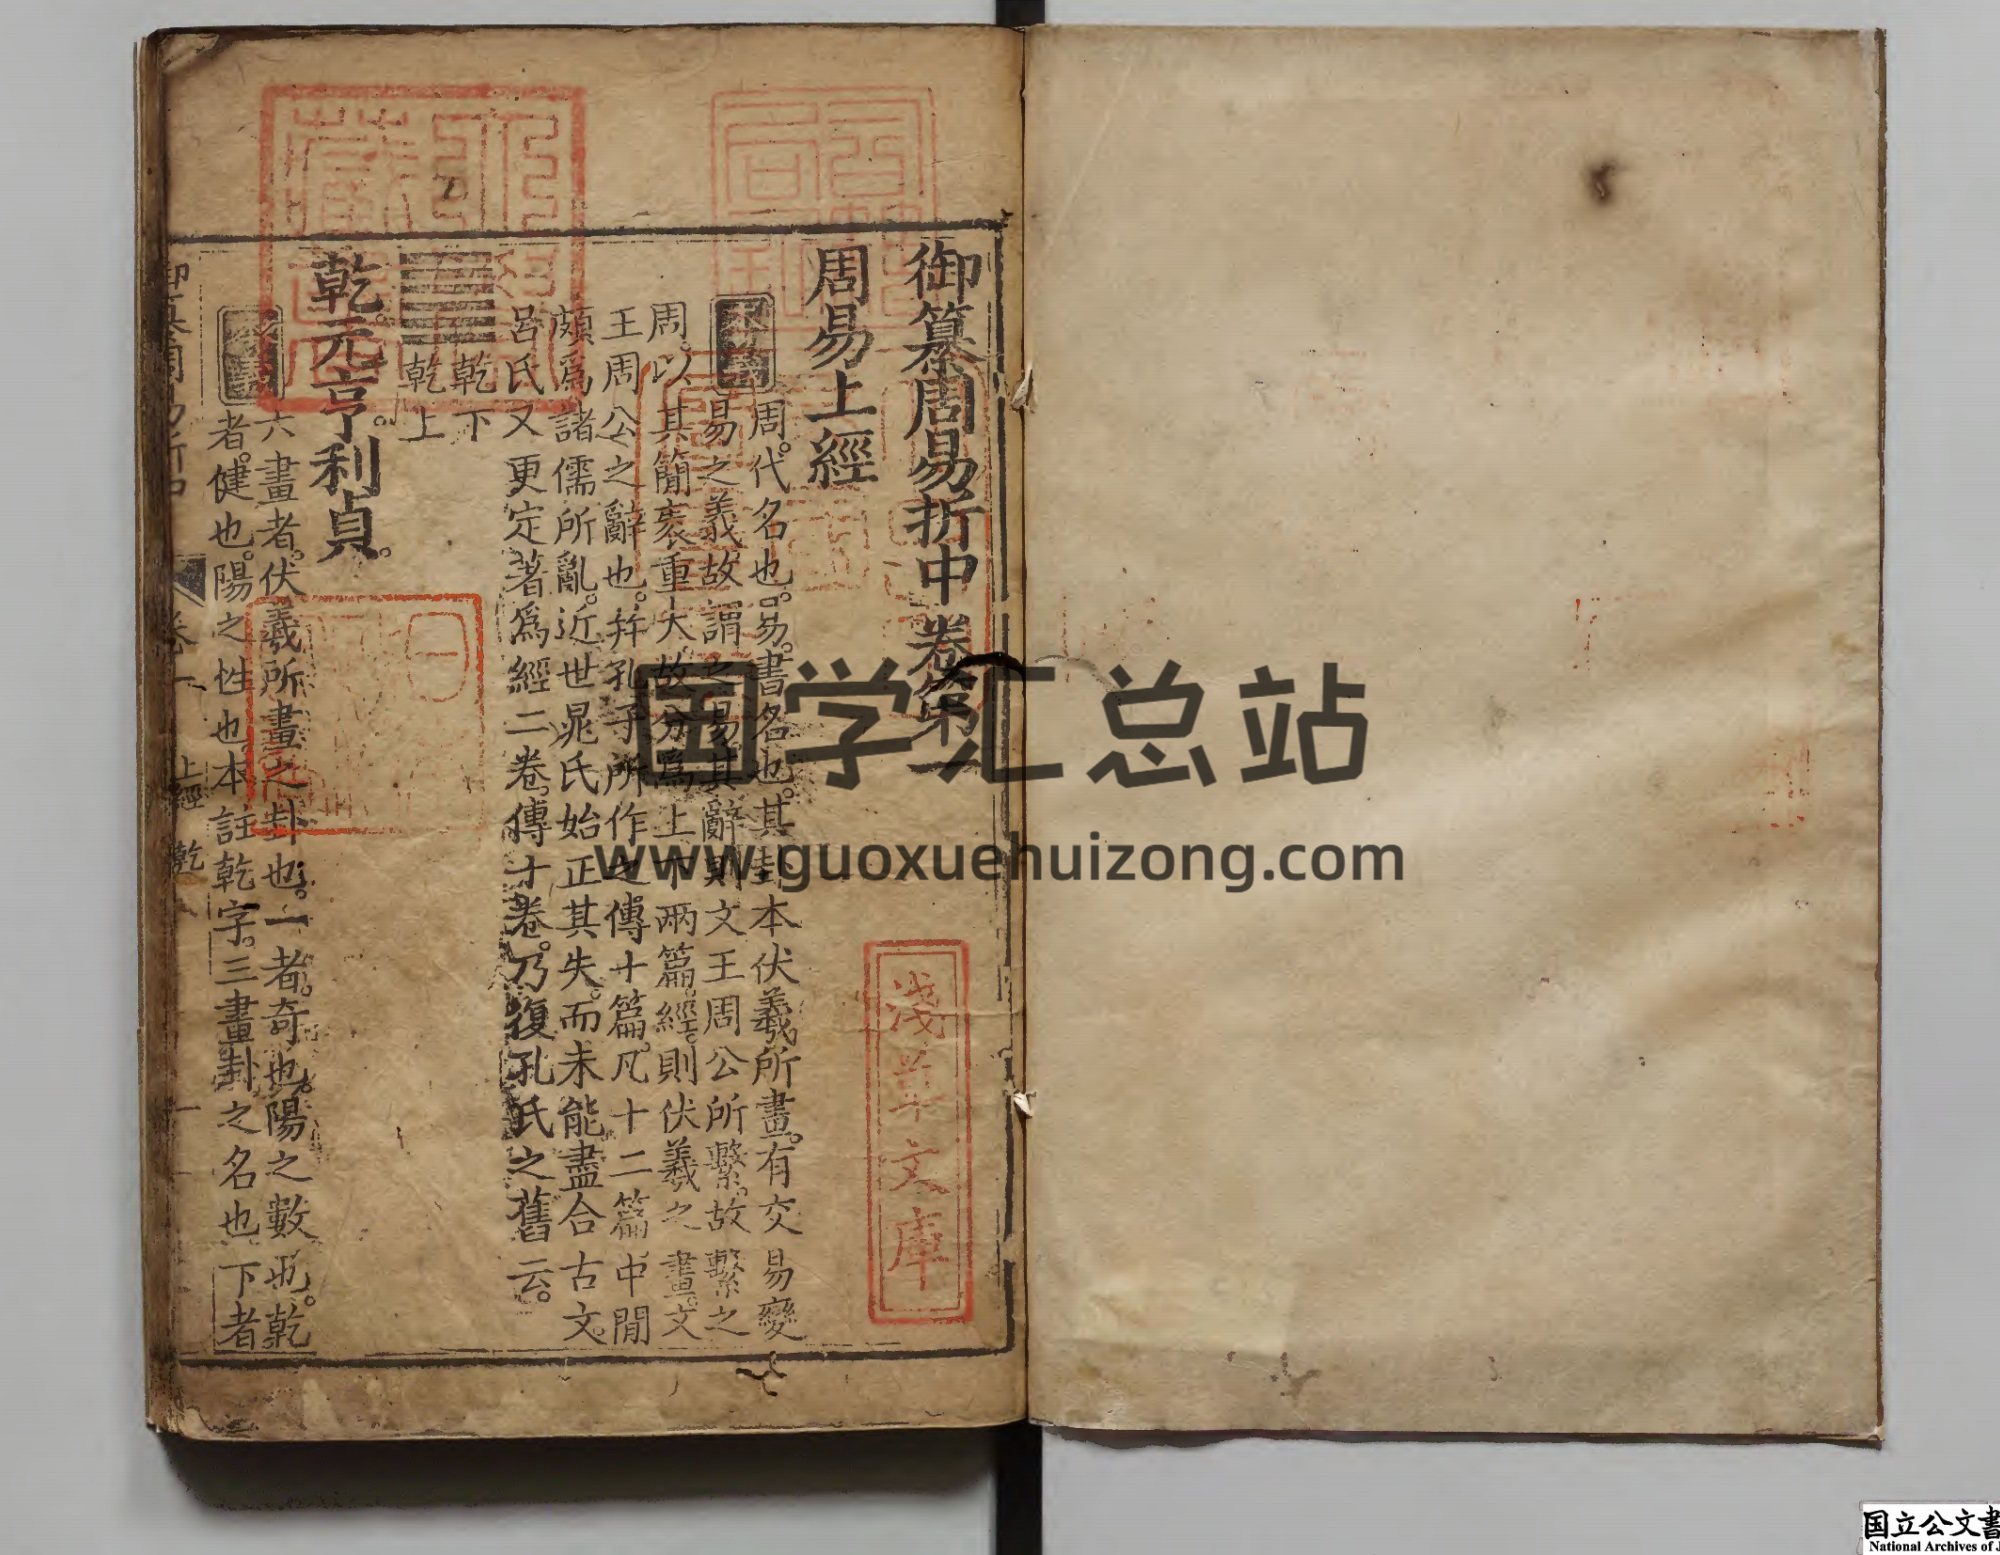 御纂周易折中卷第一
周易上經
本義
周。代名也。易。書名也。其卦本伏羲所畫。有交易變
易之義故謂之易。其辭則文王周公所繫。故繫之
周。以其簡袠重大。故分爲上下兩篇。經。則伏羲之畫。文
王周公之辭也。幷孔子所作之傳十篇。凡十二篇中閒
頗爲諸儒所亂。近世晁氏始正其失。而未能盡合古文。
呂氏又更定著爲經二卷。傳十卷。乃復孔氏之舊云。
乾下
乾上
乾。元亨。利貞。
本義
六畫者。伏羲所畫之卦也。一者。奇也。陽之數也。乾
者。健也。陽之性也。本註乾字。三畫卦之名也下者
御纂周易折中
卷一
上經 乾
一
淺草文庫
国学汇总站
www.guoxuehuizong.com
国立公文書
National Archives of J